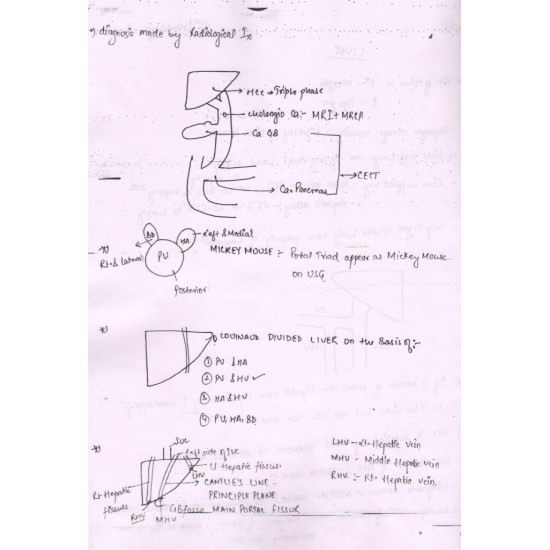 diagnosis made by Radiological Ix
HCC → Triple phase
cholangio Ca:- MRI + MRCP
Ca GB
CECT
Ca. Pancreas
BD
HA
Left & Medial
PV
Rt. & lateral
Posterior
MICKEY MOUSE :- Portal Triad appear as Mickey Mouse
on USG
COUINAUD DIVIDED LIVER on the Basis of:-
① PV & HA
② PV & HV ✓
③ HA & HV
④ PV, HA, BD
IVC
Left side of IVC
Hepatic fissure
LHV
CANTLIE'S LINE -
PRINCIPLE PLANE
Rt Hepatic
fissure
RHV
MHV
GB fossa
MAIN PORTAL FISSUR
LHV - Hepatic vein
MHV - Middle Hepatic vein
RHV :- Rt. Hepatic vein.